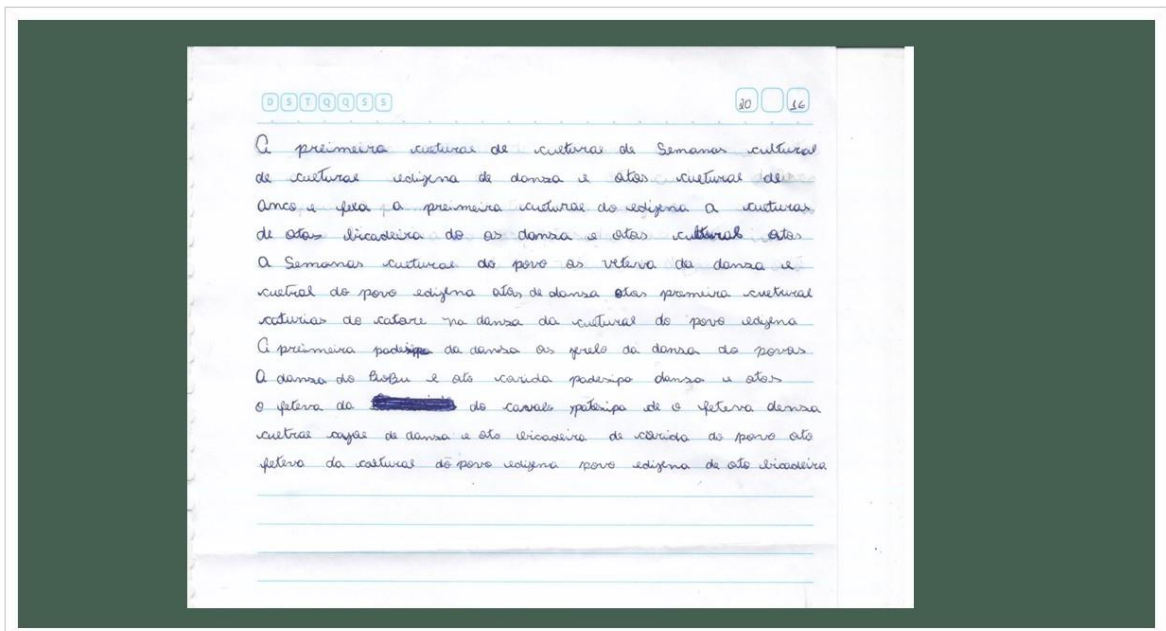 D S T Q Q S S 20 16
A preimeira cueturae de cueturae de Semanas cultural
de cuetural edigena de danza e atos cuetural de
anco e fera a preimeira cueturae do edigena a cueturas
de atos bicadeira do as danza e atos cultural atos
a Semanas cueturae do povo as veteva da danza e
cuetral do povo edigena atos de dansa atos premeira cuetural
caturias do catare na danza da cuetural do povo edigena
A preimeira padesipa da dansa as jerelo da dansa do povos
A dansa do BoBu e ato carida padesipo danza e atos
o feteva da do cavalo patesipa de o feteva densa
cuetrae de dansa e ato bicadeira de carida do povo ato
feteva da coltural do povo edigena povo edigena de ato bicadeira